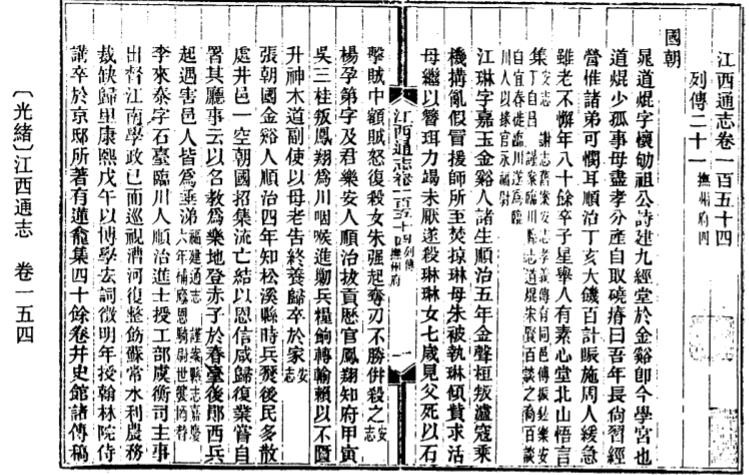 江西通志卷一百五十四
列傳二十一 撫州府四
國朝
晁道焜字懷劬祖公詩建九經堂於金谿卽今學宮也
道焜少孤事母盡孝分產自取磽瘠曰吾年長尙習經
營惟諸弟可憫耳順治丁亥大饑百計賑施周人緩急
雖老不懈年八十餘卒子星舉人有素心堂北山悟言
集
江琳字嘉玉金谿人諸生順治五年金聲桓叛瀘寇乘
機搆亂假冒援師所至焚掠琳母朱被執琳傾貲求活
母繼以簪珥力竭未厭遂殺琳琳女七歲見父死以石
擊賊中顱賊怒復殺女朱强起奪刃不勝併殺之 安志
楊孕第字及君樂安人順治拔貢歷官鳳翔知府甲寅
吳三桂叛鳳翔爲川咽喉進勦兵糧餉轉輸賴以不匱
升神木道副使以母老告終養歸卒於家 安志
張朝國金谿人順治四年知松溪縣時兵燹後民多散
處井邑一空朝國招集流亡結以恩信咸歸復業嘗自
署其廳事云以名敎爲樂地登赤子於春臺後鄖西兵
起遇害邑人皆爲垂涕 福建通志
李來泰字石臺臨川人順治進士授工部虞衡司主事
出督江南學政已而巡視漕河復整飭蘇常水利農務
裁缺歸里康熙戊午以博學宏詞徵明年授翰林院侍
講卒於京邸所著有蓮龕集四十餘卷幷史館諸傳稿
江西通志卷一百五十四 列傳 撫州府 一
〔光緖〕江西通志 卷一五四